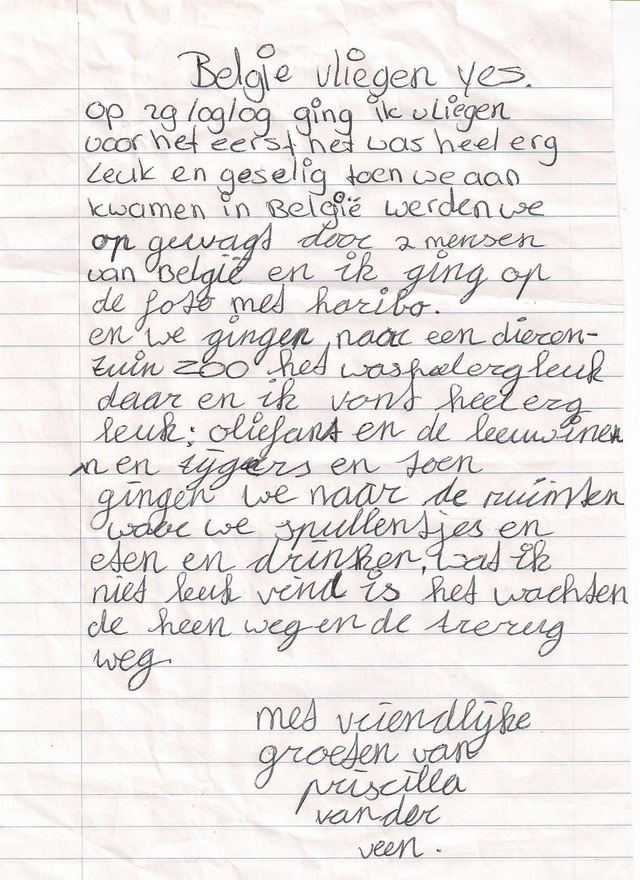 Belgie vliegen yes.
op 29/09/09 ging ik vliegen
voor het eerst het was heel erg
Leuk en geselig toen we aan
kwamen in België werden we
op gewagt door 2 mensen
van België en ik ging op
de foto met haribo.
en we gingen naar een dieren-
tuin ZOO het was heel erg leuk
daar en ik vont heel erg
leuk: olifant en de leeuwinen
en tijgers en toen
gingen we naar de ruimten
waar we spullentjes en
eten en drinken, wat ik
niet leuk vind is het wachten
de heen weg en de trerug
weg.
met vriendlijke
groeten van
priscilla
van der
veen.